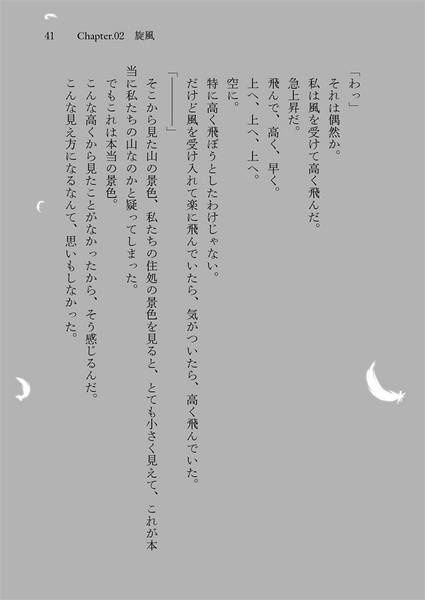 41 Chapter.02 旋風
「わっ」
それは偶然か。
私は風を受けて高く飛んだ。
急上昇だ。
飛んで、高く、早く。
上へ、上へ、上へ。
空に。
特に高く飛ぼうとしたわけじゃない。
だけど風を受け入れて楽に飛んでいたら、気がついたら、高く飛んでいた。
「――――」
そこから見た山の景色、私たちの住処の景色を見ると、とても小さく見えて、これが本
当に私たちの山なのかと疑ってしまった。
でもこれは本当の景色。
こんな高くから見たことがなかったから、そう感じるんだ。
こんな見え方になるなんて、思いもしなかった。